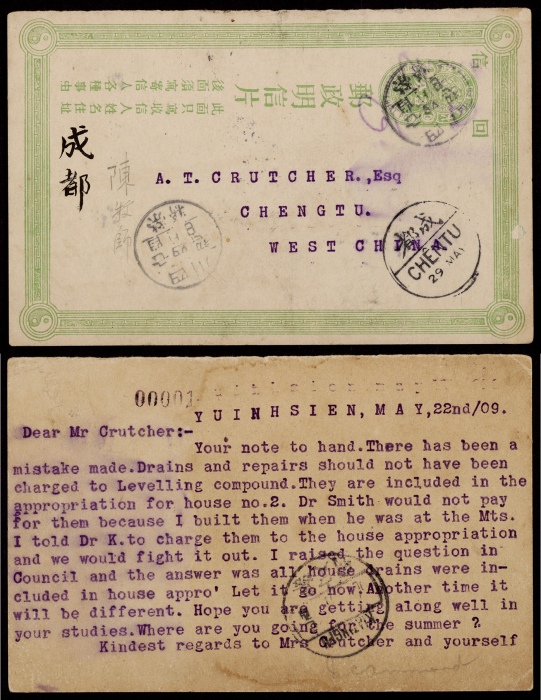 郵政明信片
此面只寫收信人姓名住址
後面須寫寄信人各種事由
信
回
成都
陳牧師
A. T. CRUTCHER.,Esq
CHENGTU.
WEST CHINA
成都
CHENTU
29 MAY
00001
YUINHSIEN, MAY,22nd/09.
Dear Mr Crutcher:-
Your note to hand.There has been a
mistake made.Drains and repairs should not have been
charged to Levelling compound.They are included in the
appropriation for house no.2. Dr Smith would not pay
for them because I built them when he was at the Mts.
I told Dr K.to charge them to the house appropriation
and we would fight it out. I raised the question in
Council and the answer was all house drains were in-
cluded in house appro' Let it go now.Another time it
will be different. Hope you are getting along well in
your studies.Where are you going for the summer ?
Kindest regards to Mrs Crutcher and yourself